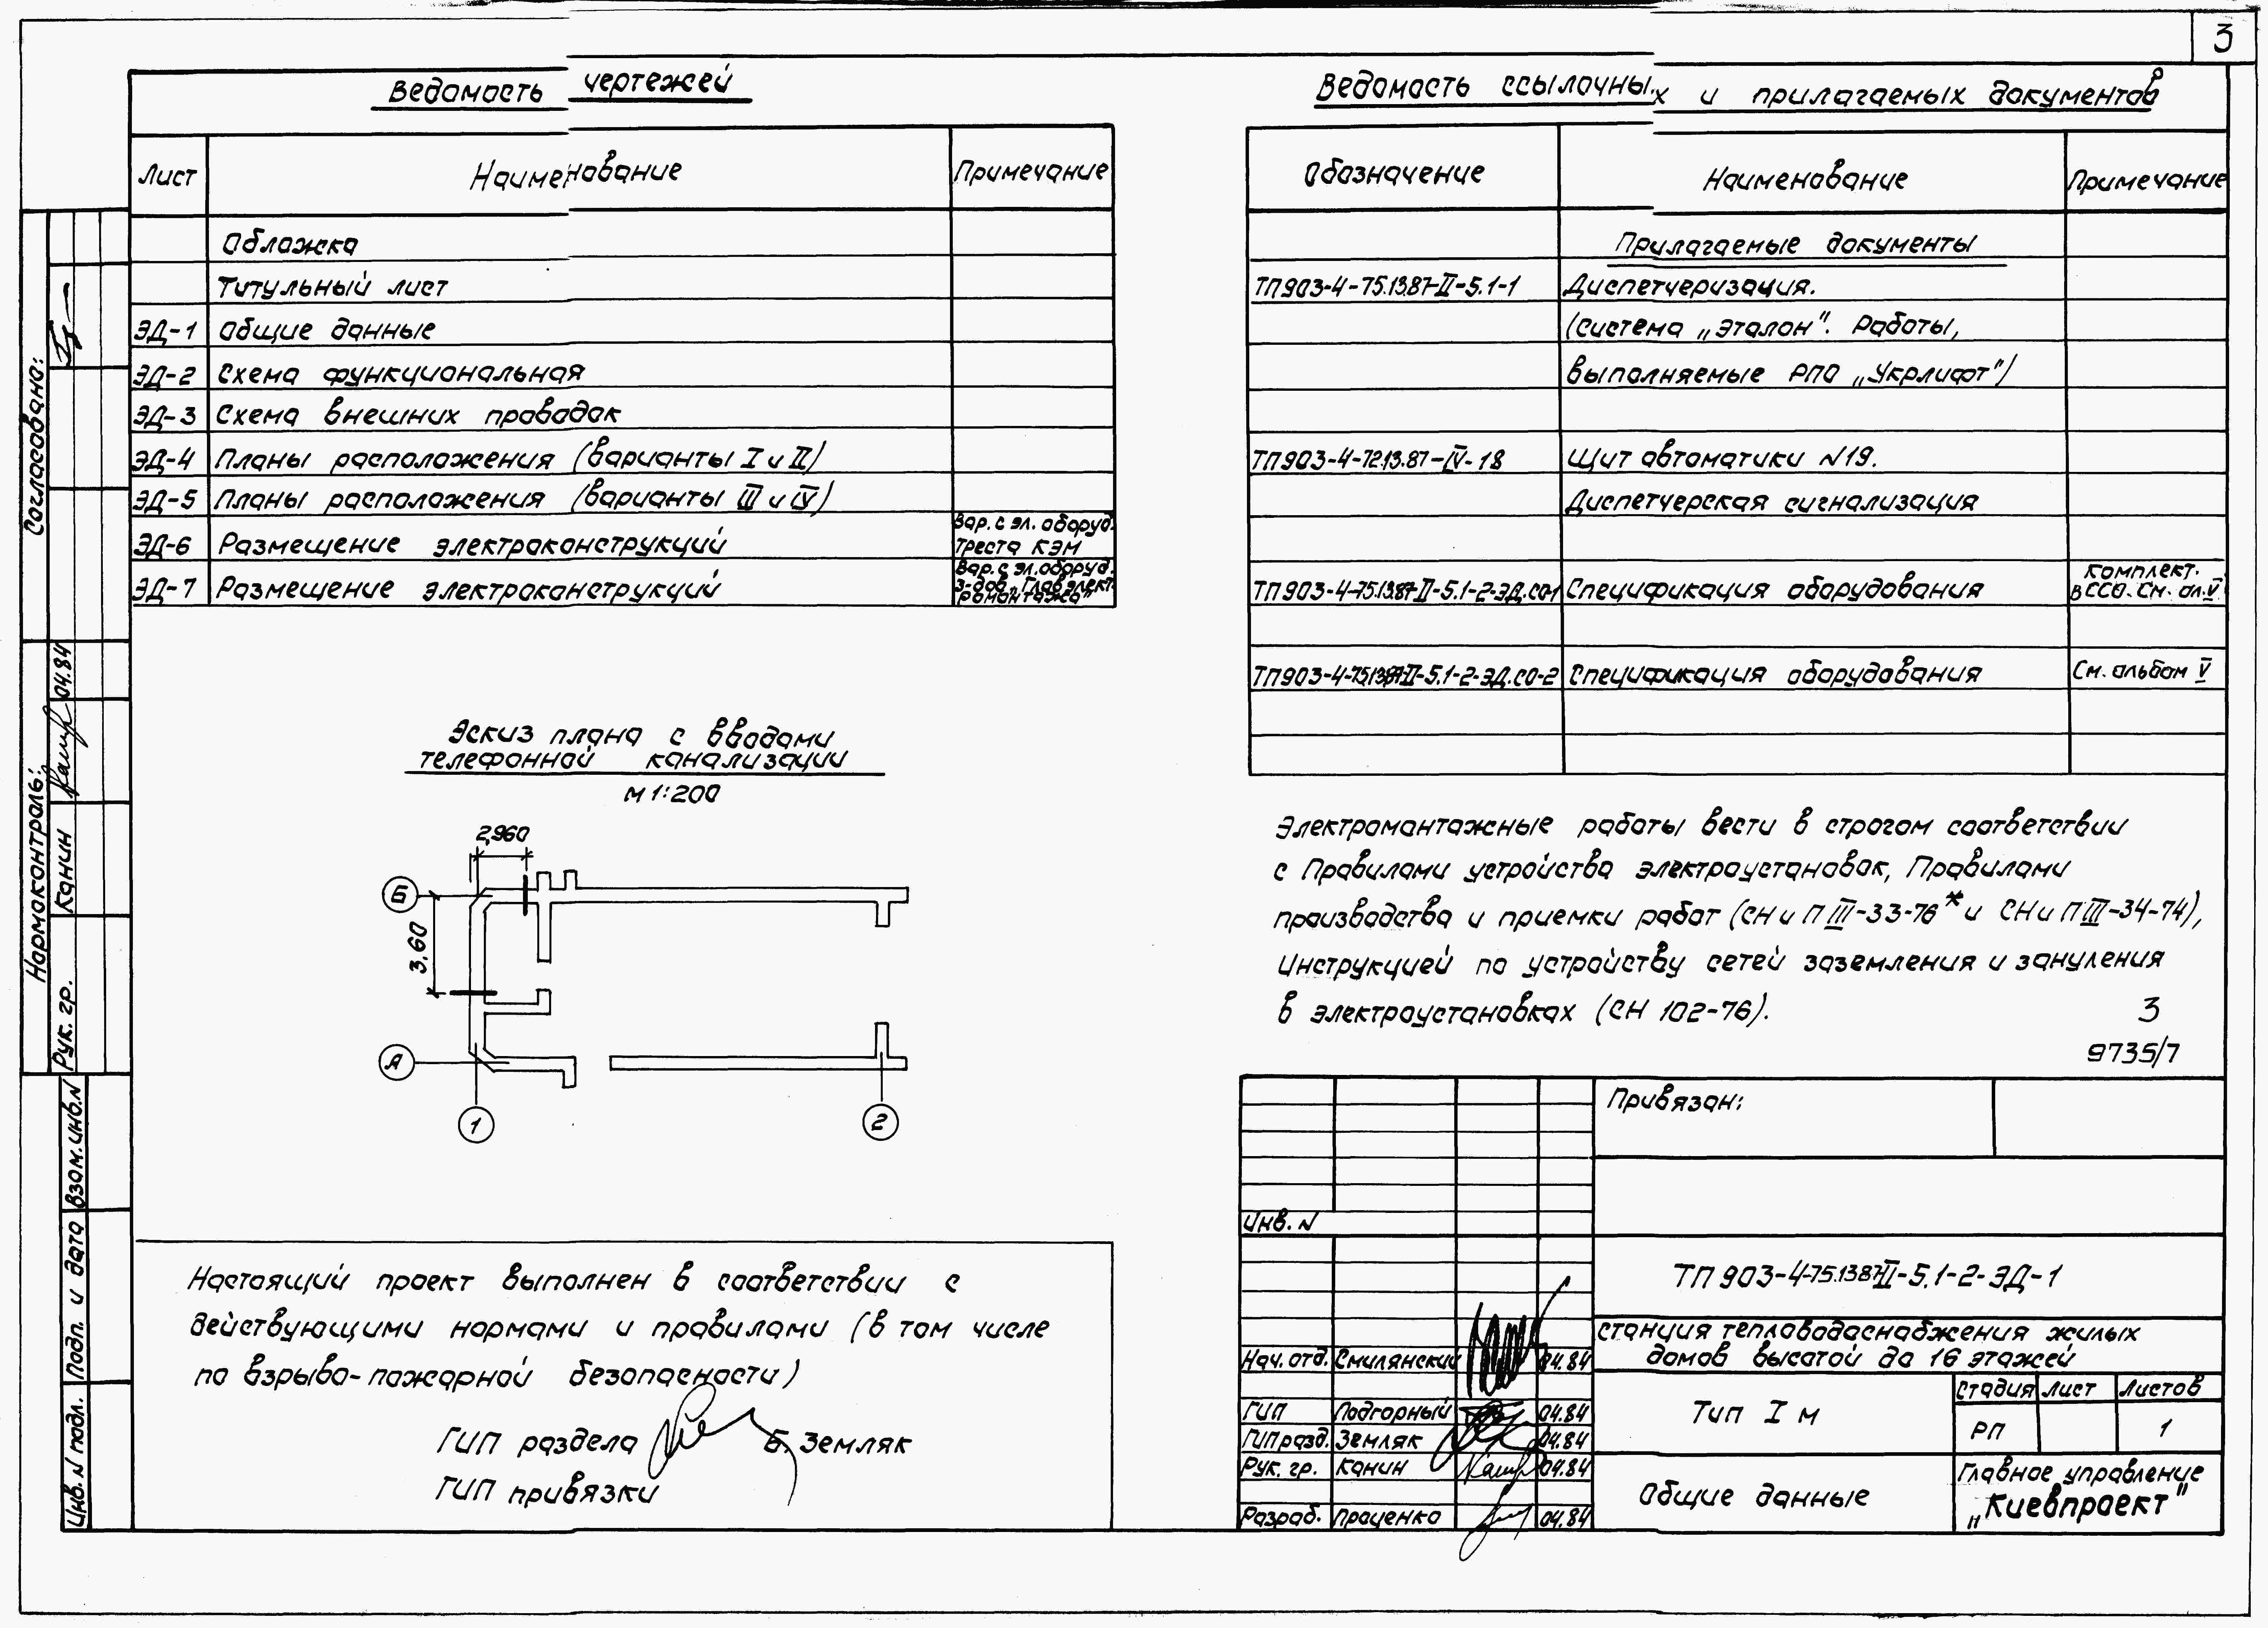 3
Ведомость чертежей
Лист Наименование Примечание
Обложка
Титульный лист
ЭД-1 Общие данные
ЭД-2 Схема функциональная
ЭД-3 Схема внешних проводок
ЭД-4 Планы расположения (варианты I и II)
ЭД-5 Планы расположения (варианты III и IV)
ЭД-6 Размещение электроконструкций Вар. с эл. оборуд.
треста КЭМ
ЭД-7 Размещение электроконструкций Вар. с эл. оборуд.
з-дов „Главэлект-
ромонтажа"
Ведомость ссылочных и прилагаемых документов
Обозначение Наименование Примечание
Прилагаемые документы
ТП903-4-75.13.87-II-5.1-1 Диспетчеризация.
(система „Эталон". Работы,
выполняемые РПО „Укрлифт")
ТП903-4-72.13.87-IV-18 Щит автоматики N19.
Диспетчерская сигнализация
ТП903-4-75.13.87-II-5.1-2-ЭД.СО-1 Спецификация оборудования Комплект.
в ССО. См. ал. V
ТП903-4-75.13.87-II-5.1-2-ЭД.СО-2 Спецификация оборудования См. альбом V
Эскиз плана с вводами
телефонной канализации
М 1:200
2,960
Б
3,60
А
1
2
Электромонтажные работы вести в строгом соответствии
с Правилами устройства электроустановок, Правилами
производства и приемки работ (СНиП III-33-76* и СНиП III-34-74),
Инструкцией по устройству сетей заземления и зануления
в электроустановках (СН 102-76).
3
9735/7
Настоящий проект выполнен в соответствии с
действующими нормами и правилами (в том числе
по взрыво-пожарной безопасности)
ГИП раздела Б. Земляк
ГИП привязки
Привязан:
Инв. N
ТП 903-4-75.13.87-II-5.1-2-ЭД-1
станция тепловодоснабжения жилых
домов высотой до 16 этажей
Нач. отд. Смилянский 04.84
ГИП Подгорный 04.84
ГИП разд. Земляк 04.84
Рук. гр. Канин 04.84
Разраб. Проценко 04.84
Тип I м
Стадия Лист Листов
РП 1
Общие данные
Главное управление
„Киевпроект"
Согласовано:
Нормоконтроль:
Рук. гр. Канин 04.84
Взам. инв. N
Подп. и дата
Инв. N подл.